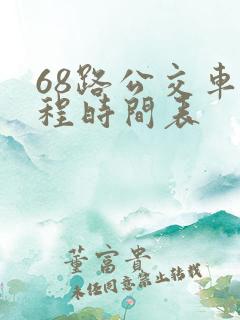 68路公交車
程時間表
董富貴
未任同意禁止转載